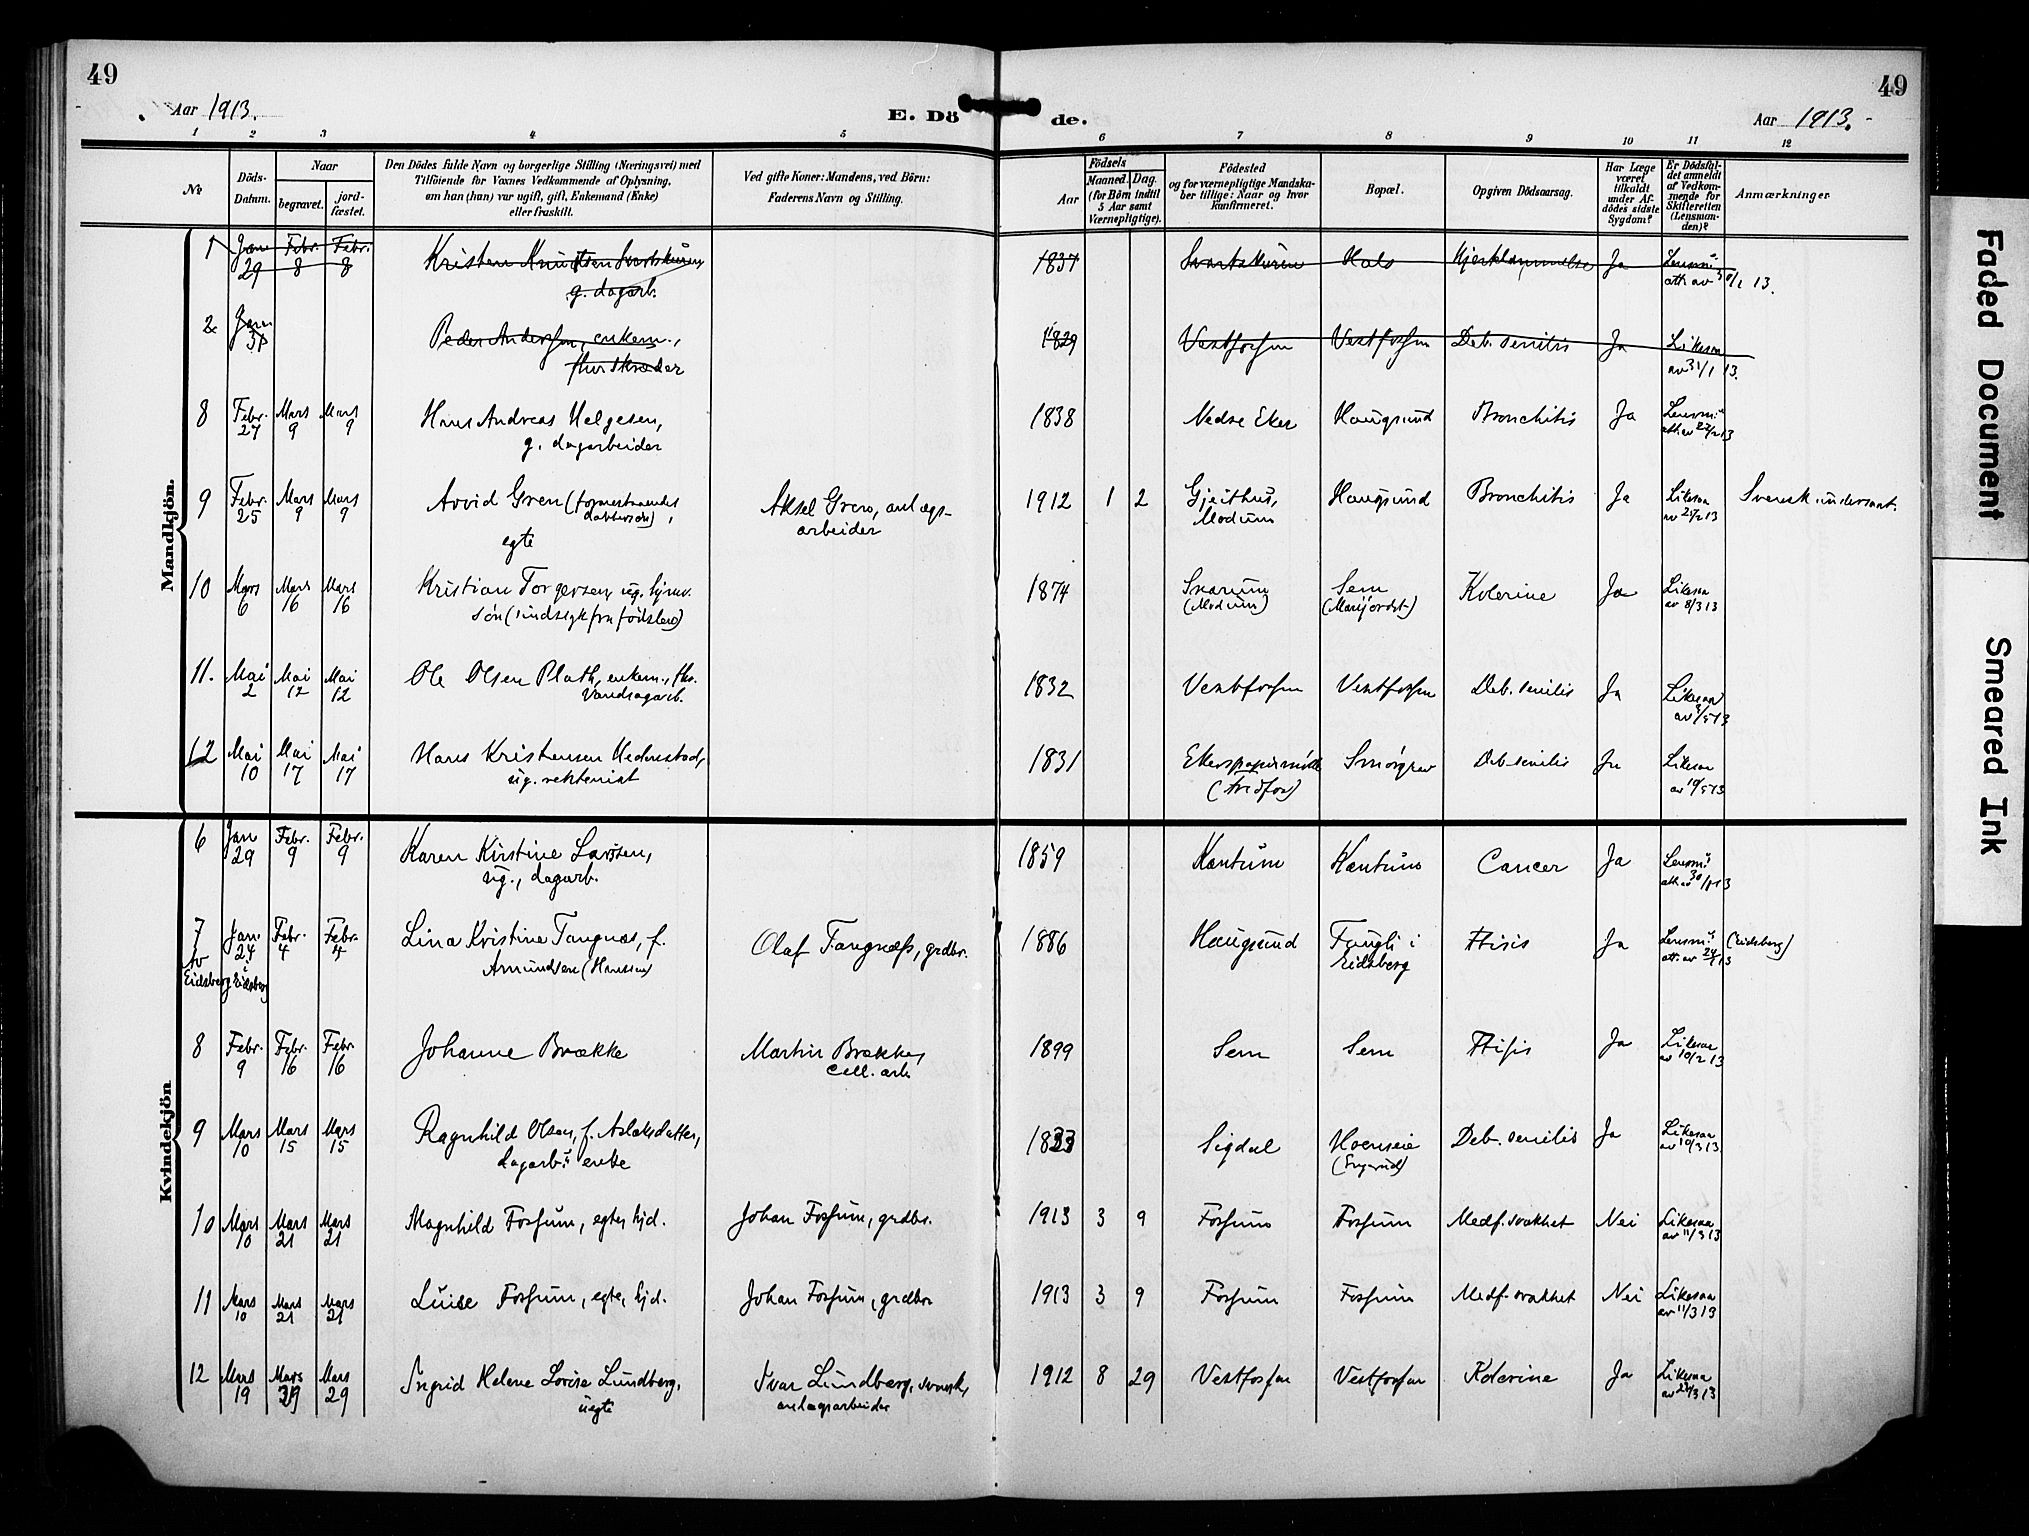 49
49
Aar 1913.
E. Dö de.
Aar 1913.
1 2 3 4 5 6 7 8 9 10 11 12
No
Döds-Datum.
Naar
begravet.
jord-fæstet.
Den Dödes fulde Navn og borgerlige Stilling (Næringsvei) med
Tilföiende for Voxnes Vedkommende af Oplysning,
om han (hun) var ugift, gift, Enkemand (Enke)
eller fraskilt.
Ved gifte Koner: Mandens, ved Börn:
Faderens Navn og Stilling.
Födsels
Aar
Maaned. Dag.
(for Börn indtil
5 Aar samt
Værnepligtige).
Födested
og for værnepligtige Mandska-
ber tillige: Naar og hvor
konfirmeret.
Bopæl.
Opgiven Dödsaarsag.
Har Læge
været
tilkaldt
under Af-
dödes sidste
Sygdom?
Er Dödsfal-
det anmeldt
af Vedkom-
mende for
Skifteretten
(Lensman-
den)?
Anmærkninger.
Mandkjön.
1 Jan 29 Febr. 8 Febr. 8 Kristen Knudsen
g. dagarb. 1837 Hals Ja Lensm.
att. av 30/1 13.
2 Jan 31 Peder Andersen, enkem.,
1829 Vestfossen Vestfossen Deb. senilis Ja Likesaa
av 31/1 13.
8 Febr. 27 Mars 9 Mars 9 Hans Andreas Helgesen,
g. dagarbeider 1838 Nedre Eker Haugsund Bronchitis Ja Lensm.
att. av 27/2 13
9 Febr. 25 Mars 9 Mars 9 Arvid Gren
egte Aksel Gren, anlægs-
arbeider 1912 1 2 Gjeithus,
Modum Haugsund Bronchitis Ja Likesaa
av 25/2 13 Svensk undersaat.
10 Mars 6 Mars 16 Mars 16 Kristian Torgersen, ug.
søn (sindssyk fra fødslen) 1874 Snarum
(Modum) Sem Kolerine Ja Likesaa
av 8/3 13
11. Mai 2 Mai 12 Mai 12 Ole Olsen Plath, enkem., fhv.
Vandsagarb. 1832 Vestfossen Vestfossen Deb. senilis Ja Likesaa
12 Mai 10 Mai 17 Mai 17 Hans Kristensen Hedenstad,
ug. 1831 Ekerspapirmølle Smørgrav Deb. senilis Ja Likesaa
av 10/5 13
Kvindekjön
6 Jan 29 Febr. 9 Febr. 9 Karen Kirstine Larssen,
ug., dagarb. 1859 Kontum Kontum Cancer Ja Lensm.
att. av 30/1 13
7 Jan. 24 Febr. 4 Febr. 4 Lina Kristine Tangnæs, f.
av
Eidsberg i Eidsberg
Amundsen (Hansen) Olaf Tangnæss, grdbr. 1886 Haugsund Fangli i
Eidsberg Ftisis Ja Lensm.
att. av 24/1 13 (Eidsberg)
8 Febr. 9 Febr. 16 Febr. 16 Johanne Brække Martin Brække,
cell. arb. 1899 Sem Sem Ftisis Ja Likesaa
av 10/2 13
9 Mars 10 Mars 15 Mars 15 Ragnhild Olsen, f. Aslaksdatter,
dagarb.s enke 1833 Sigdal Hoenseie Deb. senilis Ja Likesaa
av 10/3 13
10 Mars 10 Mars 21 Mars 21 Magnhild Fossum, egte, hjd. Johan Fossum, grdbr. 1913 3 9 Fossum Fossum Medf. svakhet Nei Likesaa
av 11/3 13
11 Mars 10 Mars 21 Mars 21 Luise Fossum, egte, hjd. Johan Fossum, grdbr. 1913 3 9 Fossum Fossum Medf. svakhet Nei Likesaa
av 11/3 13
12 Mars 19 Mars 29 Mars 29 Ingrid Helene Lovise Lundberg,
uegte Ivar Lundberg, svensk,
anlægsarbeider 1912 8 29 Vestfossen Vestfossen Kolerine Ja Likesaa
Faded Document
Smeared Ink